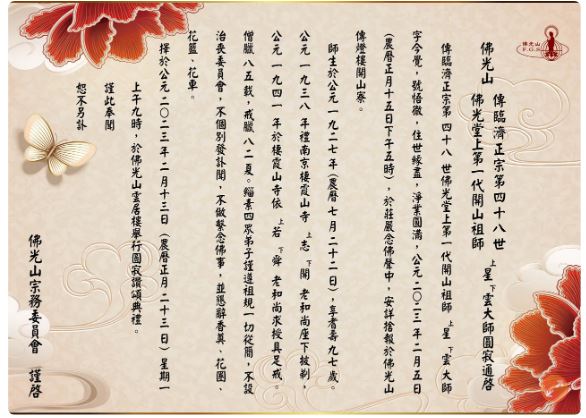 佛光山
F.G.S.
佛光山 傳臨濟正宗第四十八世
佛光堂上第一代開山祖師 上星下雲大師圓寂通啓
傳臨濟正宗第四十八世佛光堂上第一代開山祖師 上星下雲大師
字今覺，號悟徹，住世緣盡，淨業圓滿，公元二〇二三年二月五日
（農曆正月十五日下午五時），於莊嚴念佛聲中，安詳捨報於佛光山
傳燈樓開山寮。
師生於公元一九二七年（農曆七月二十二日），享耆壽九七歲。
公元一九三八年禮南京棲霞山寺 上志下開 老和尚座下披剃，
公元一九四一年於棲霞山寺依 上若下舜 老和尚求授具足戒。
僧臘八五載，戒臘八二夏。緇素四眾弟子謹遵祖規一切從簡，不設
治喪委員會，不個別發訃聞，不做繫念佛事，並懇辭香奠、花圈、
花籃、花車。
擇於公元二〇二三年二月十三日（農曆正月二十三日）星期一
上午九時，於佛光山雲居樓舉行圓寂讚頌典禮。
謹此奉聞
恕不另訃
佛光山宗務委員會 謹啓